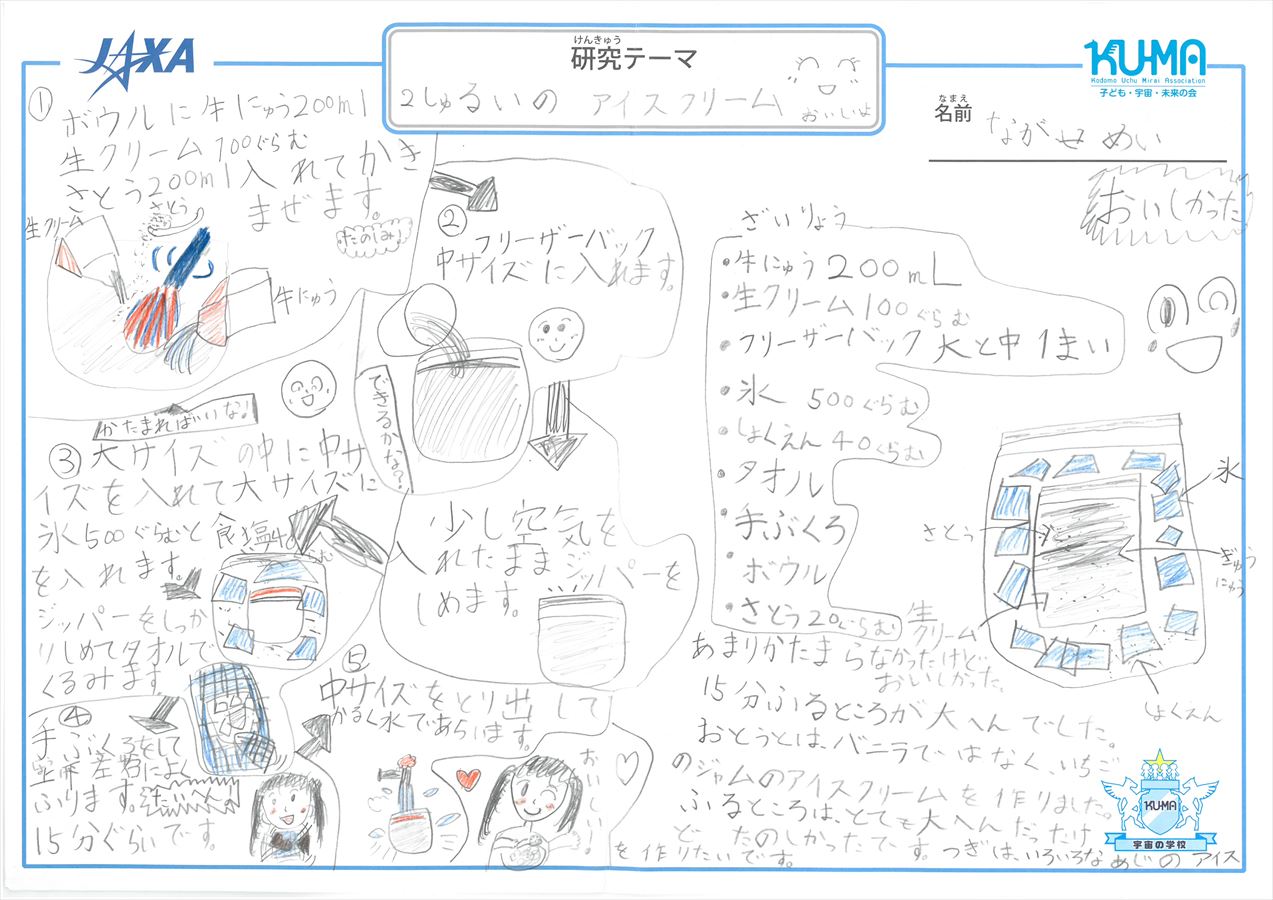 JAXA
けんきゅう
研究テーマ
2しゅるいの アイスクリーム
おいしいよ
KU-MA
Kodomo Uchu Mirai Association
子ども・宇宙・未来の会
なまえ
名前
ながせ めい
①
ボウルに牛にゅう200ml
生クリーム100ぐらむ
さとう200ml入れてかき
まぜます。
さとう
生クリーム
たのしみ!
牛にゅう
②
フリーザーバック
中サイズに入れます。
できるかな?
少し空気を
入れたままジッパーを
しめます。
かたまればいいな!
③大サイズの中に中サ
イズを入れて大サイズに
氷500ぐらむと食塩40
を入れます。
ジッパーをしっか
りしめてタオルで
くるみます
④
手ぶくろをして
ふります。
15分ぐらいです。
⑤
中サイズをとり出して
かるく水であらいます。
おいしい!
おいしかった
ざいりょう
・牛にゅう200mL
・生クリーム100ぐらむ
・フリーザーバック大と中1まい
・氷 500ぐらむ
・しょくえん40ぐらむ
・タオル
・手ぶくろ
・ボウル
・さとう20ぐらむ
氷
さとう
ぎゅう
にゅう
生
クリーム
しょくえん
あまりかたまらなかったけど、
おいしかった。
15分ふるところが大へんでした。
おとうとは、バニラではなく、いちご
のジャムのアイスクリームを作りました。
ふるところは、とても大へんだったけ
ど たのしかったです。つぎは、いろいろなあじのアイス
を作りたいです。
KUMA
宇宙の学校